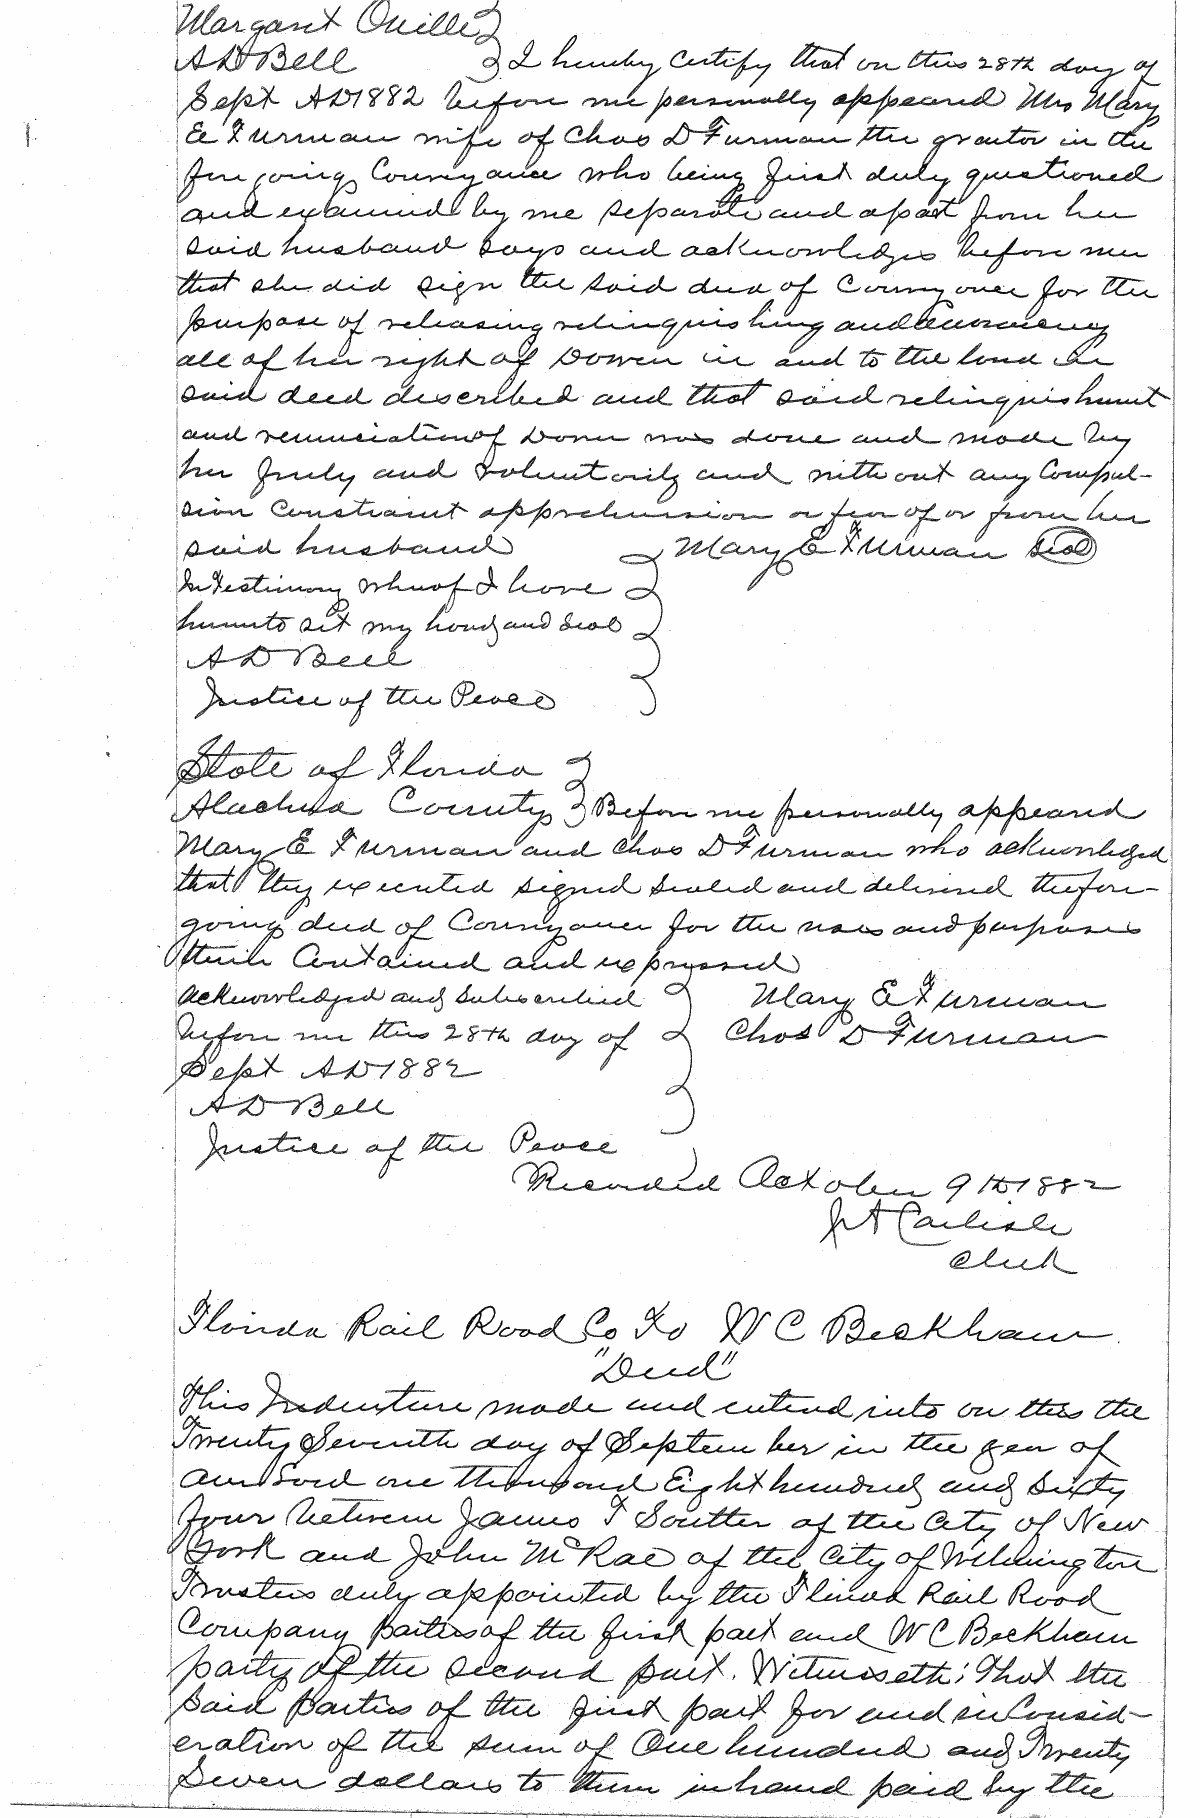 Margaret Oneille
A D Bell } I hereby certify that on this 28th day of
Sept AD 1882 before me personally appeared Mrs Mary
E Furman wife of Chas D Furman the grantor in the
foregoing Conveyance who being first duly questioned
and examined by me separate and apart from her
said husband says and acknowledges before me
that she did sign the said deed of Conveyance for the
purpose of releasing relinquishing and
all of her right of Dower in and to the land in
said deed described and that said relinquishment
and renunciation of Dower was done and made by
her freely and voluntarily and without any Compul-
sion Constraint apprehension or fear of or from her
said husband } Mary E Furman Seal
In Testimony whereof I have
hereunto set my hand and Seal
A D Bell
Justice of the Peace
State of Florida
Alachua County } Before me personally appeared
Mary E Furman and Chas D Furman who acknowledged
that they executed signed sealed and delivered the fore-
going deed of Conveyance for the uses and purposes
therein Contained and expressed
acknowledged and subscribed } Mary E Furman
before me this 28th day of Chas D Furman
Sept AD 1882
A D Bell
Justice of the Peace
Recorded October 9th 1882
J A Carlisle
Clerk
Florida Rail Road Co To W C Beckham
"Deed"
This Indenture made and entered into on this the
Twenty Seventh day of September in the year of
our Lord one thousand Eight hundred and Sixty
four between James T Soutter of the City of New
York and John McRae of the City of Wilmington
Trustees duly appointed by the Florida Rail Road
Company parties of the first part and W C Beckham
party of the second part. Witnesseth; That the
said parties of the first part for and in Consid-
eration of the sum of One hundred and Twenty
Seven dollars to them in hand paid by the